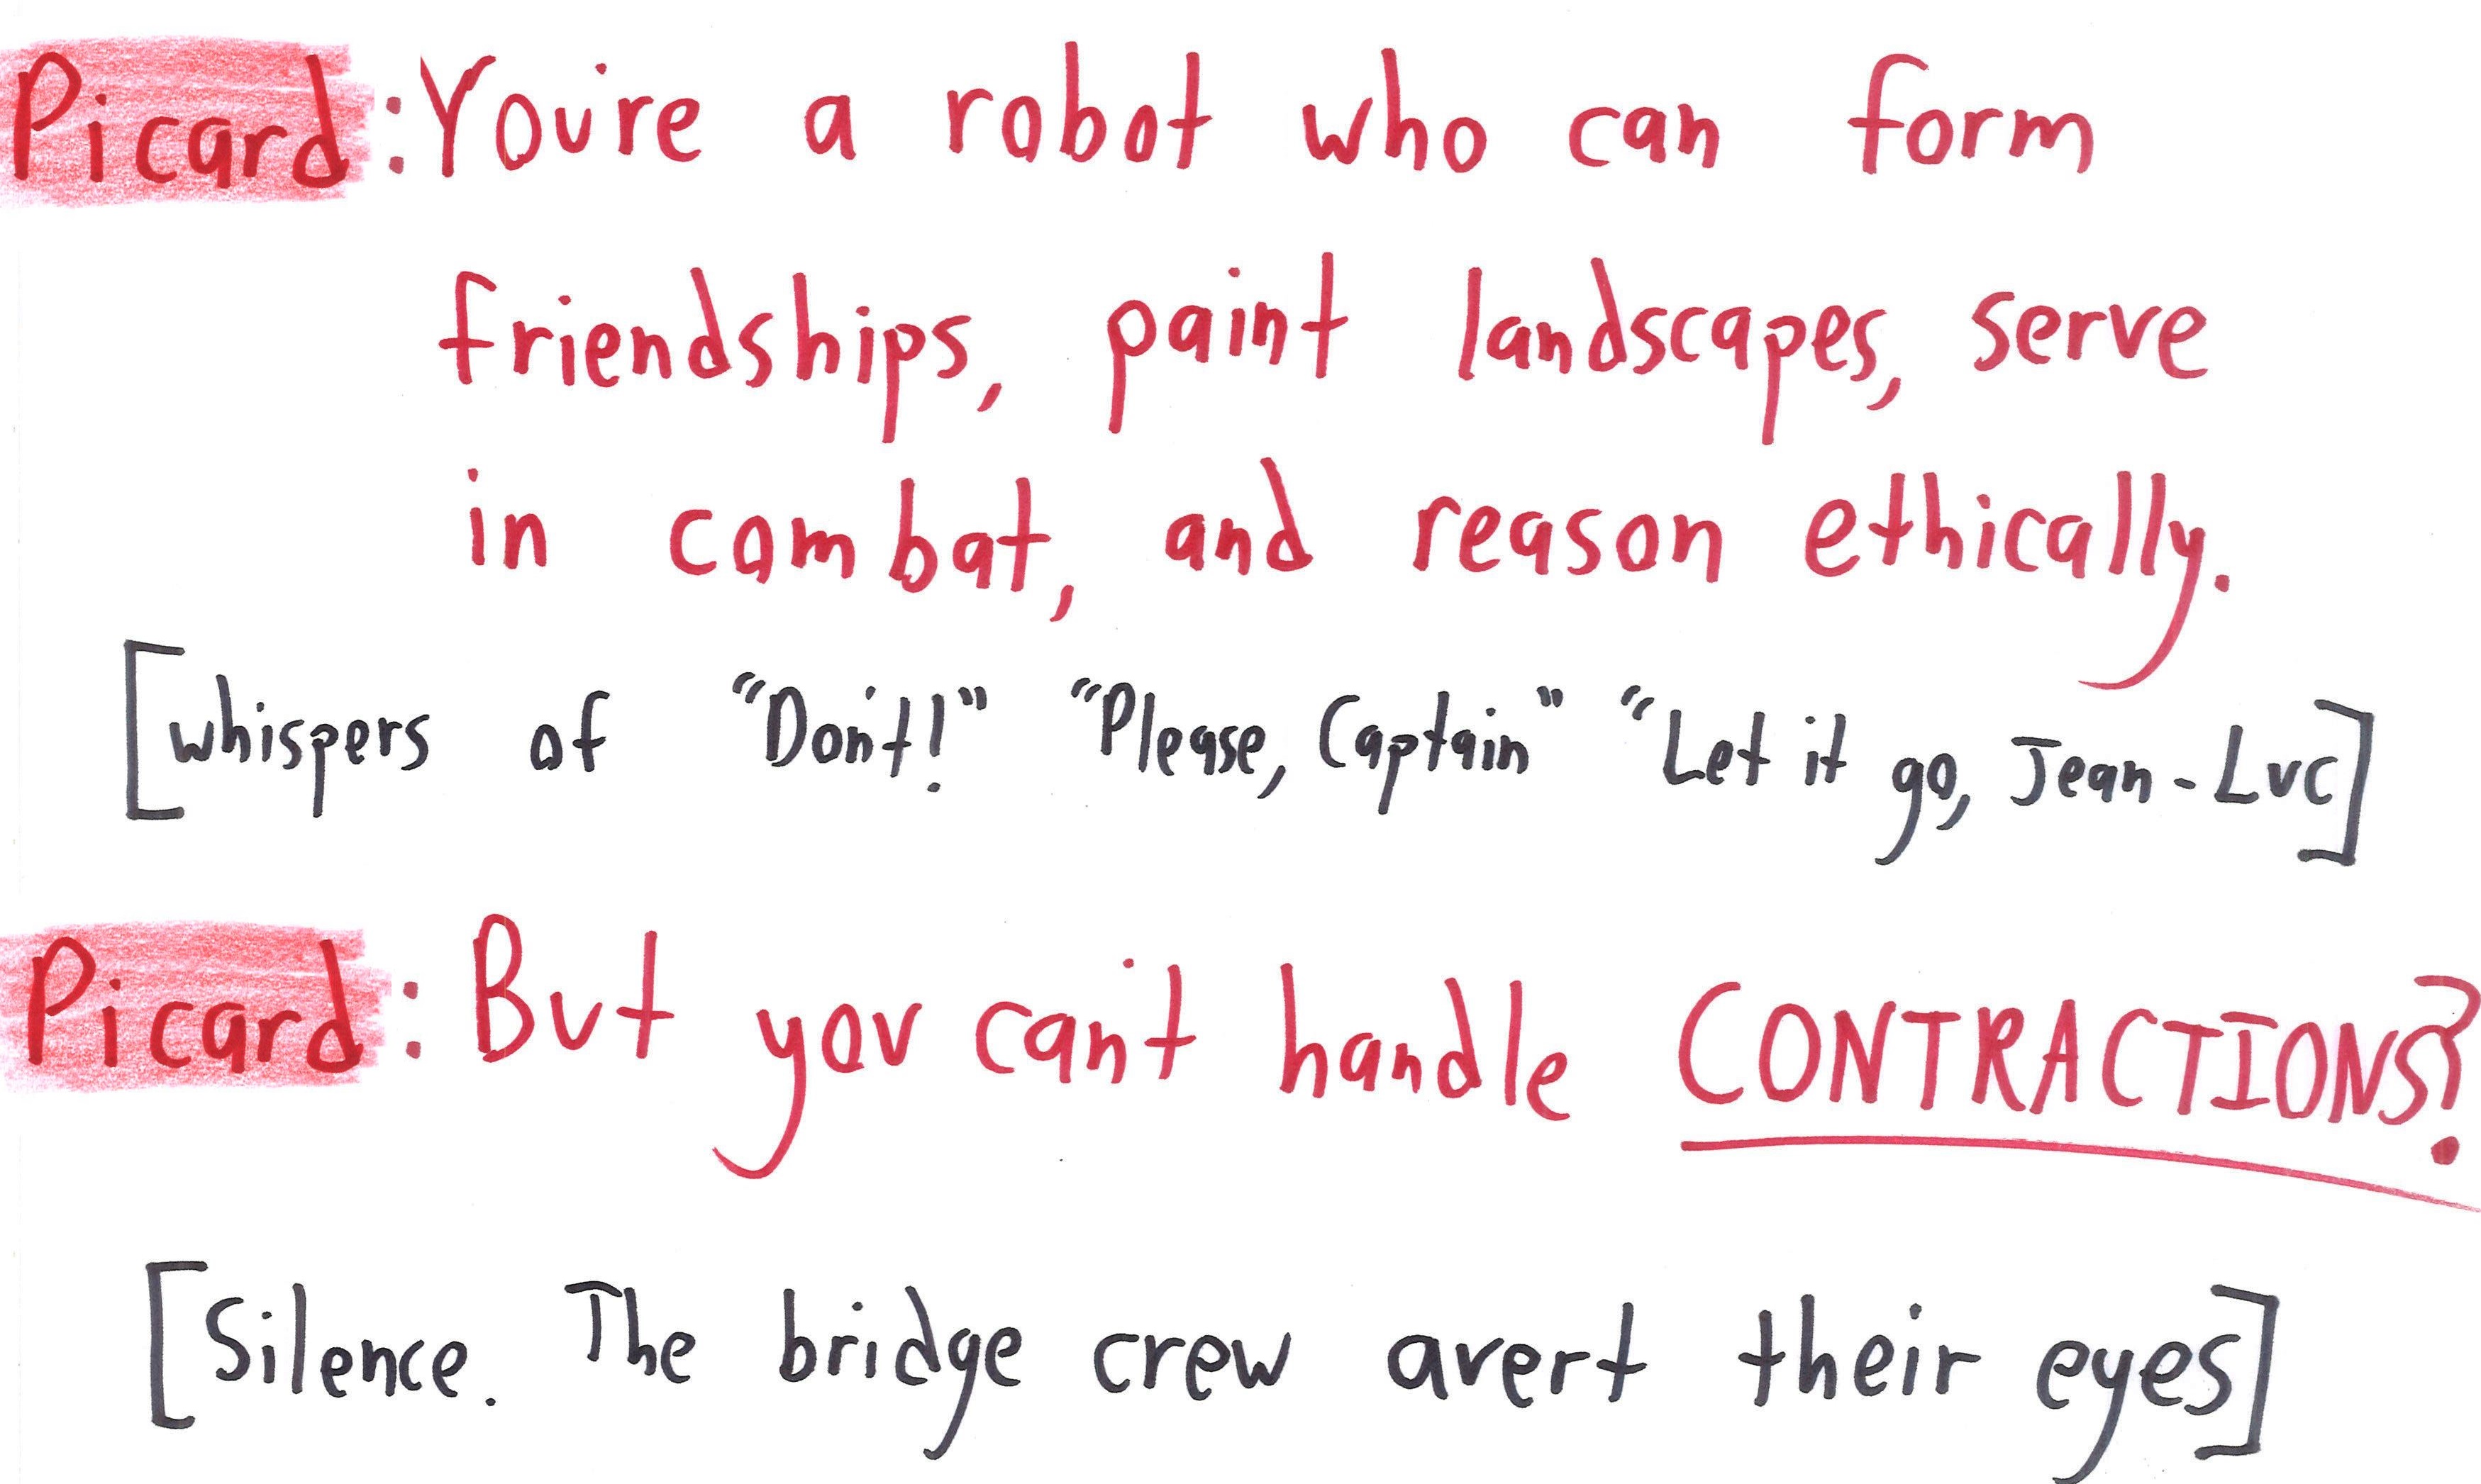 Picard: You're a robot who can form
friendships, paint landscapes, serve
in combat, and reason ethically.
[whispers of "Don't!" "Please, Captain" "Let it go, Jean-Luc]
Picard: But you can't handle CONTRACTIONS?
[Silence. The bridge crew avert their eyes]